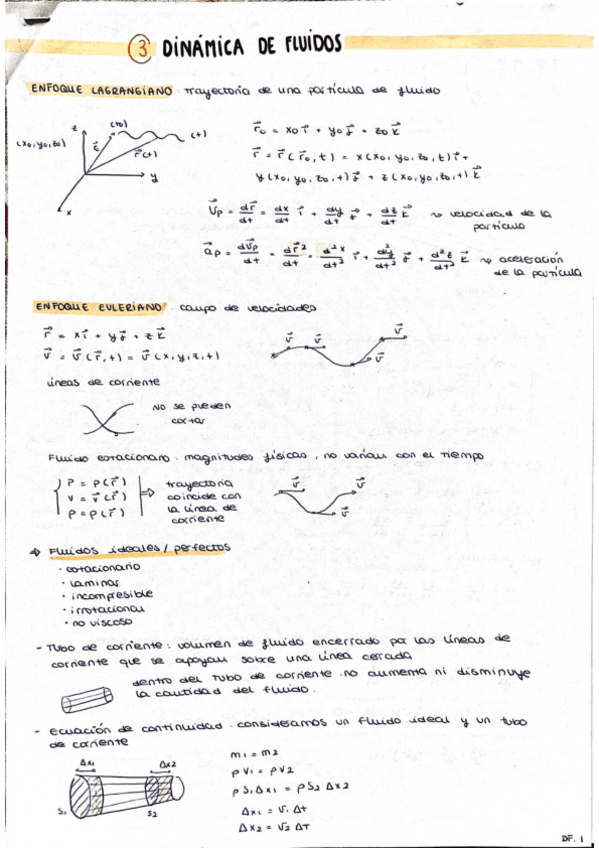 3 DINÁMICA DE FLUIDOS
ENFOQUE LAGRANGIANO: trayectoria de una partícula de fluido
z (t0) (t)
(x0, y0, z0) r⃗0 r⃗(t)
y
x
r⃗0 = x0 i⃗ + y0 j⃗ + z0 k⃗
r⃗ = r⃗(r⃗0, t) = x(x0, y0, z0, t) i⃗ +
y(x0, y0, z0, t) j⃗ + z(x0, y0, z0, t) k⃗
v⃗p = dr⃗/dt = dx/dt i⃗ + dy/dt j⃗ + dz/dt k⃗ ~> velocidad de la
partícula
a⃗p = dv⃗p/dt = dr⃗²/dt = d²x/dt² i⃗ + d²y/dt² j⃗ + d²z/dt² k⃗ ~> aceleración
de la partícula
ENFOQUE EULERIANO: campo de velocidades
r⃗ = x i⃗ + y j⃗ + z k⃗
v⃗ = v⃗(r⃗, t) = v⃗(x, y, z, t)
v⃗ v⃗ v⃗
líneas de corriente
NO se pueden
cortar
Fluido estacionario: magnitudes físicas, no varían con el tiempo
P = P(r⃗)
v = v⃗(r⃗)
ρ = ρ(r⃗)
=> trayectoria
coincide con
la línea de
corriente
v⃗ v⃗ v⃗
→ Fluidos ideales / perfectos
· estacionario
· laminar
· incompresible
· irrotacional
· no viscoso
- Tubo de corriente: volumen de fluido encerrado por las líneas de
corriente que se apoyan sobre una línea cerrada
dentro del tubo de corriente no aumenta ni disminuye
la cantidad del fluido.
- ecuación de continuidad: consideramos un fluido ideal y un tubo
de corriente
Δx1 Δx2
S1 S2
m1 = m2
ρV1 = ρV2
ρ S1 Δx1 = ρ S2 Δx2
Δx1 = v1 Δt
Δx2 = v2 Δt
DF. 1